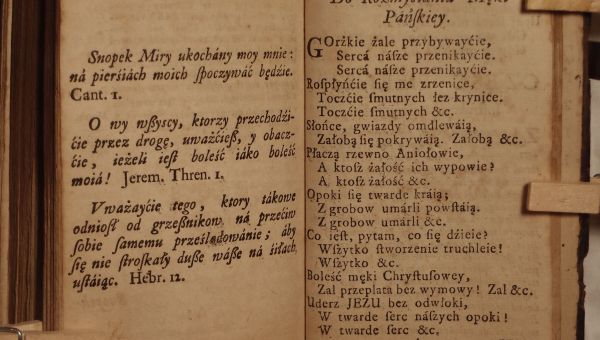 Snopek Miry ukochány moy mnie:
ná pierśiách moich ſpoczywáć będźie.
Cant. 1.
O wy wſzyscy, ktorzy przechodźi-
ćie przez drogę, uważćieß, y obacz-
ćie, ieżeli ieſt boleść iáko boleść
moiá! Jerem. Thren. 1.
Vważayćie tego, ktory tákowe
odnioſł od grzeſznikow ná przećiw
sobie samemu prześládowánie; áby
śię nie ſtroſkáły duße wáße ná śiłách
uſtáiąc. Hebr. 12.
Do Rozmyślánia Męki
Páńſkiey.
GOrżkie żale przybywayćie,
Sercá násze przenikayćie.
Sercá násze przenikayćie.
Rospłyńćie się me zrzenice,
Toczćie ſmutnych łez krynice.
Toczćie ſmutnych &c.
Słońce, gwiazdy omdlewáią,
Załobą się pokrywáią. Załobą &c.
Płaczą rzewno Aniołowie,
A ktoſz żałość ich wypowie?
A ktoſz żałość &c.
Opoki się twarde kráią;
Z grobow umárli powſtáią.
Z grobow umárli &c.
Co ieſt, pytam, co się dźieie?
Wſzyſtko ſtworzenie truchleie!
Wſzyſtko &c.
Boleść męki Chryſtuſowey,
Zal przeplata bez wymowy! Zal &c.
Uderz JEZU bez odwłoki,
W twarde ſerc náſzych opoki!
W twarde ſerc &c.